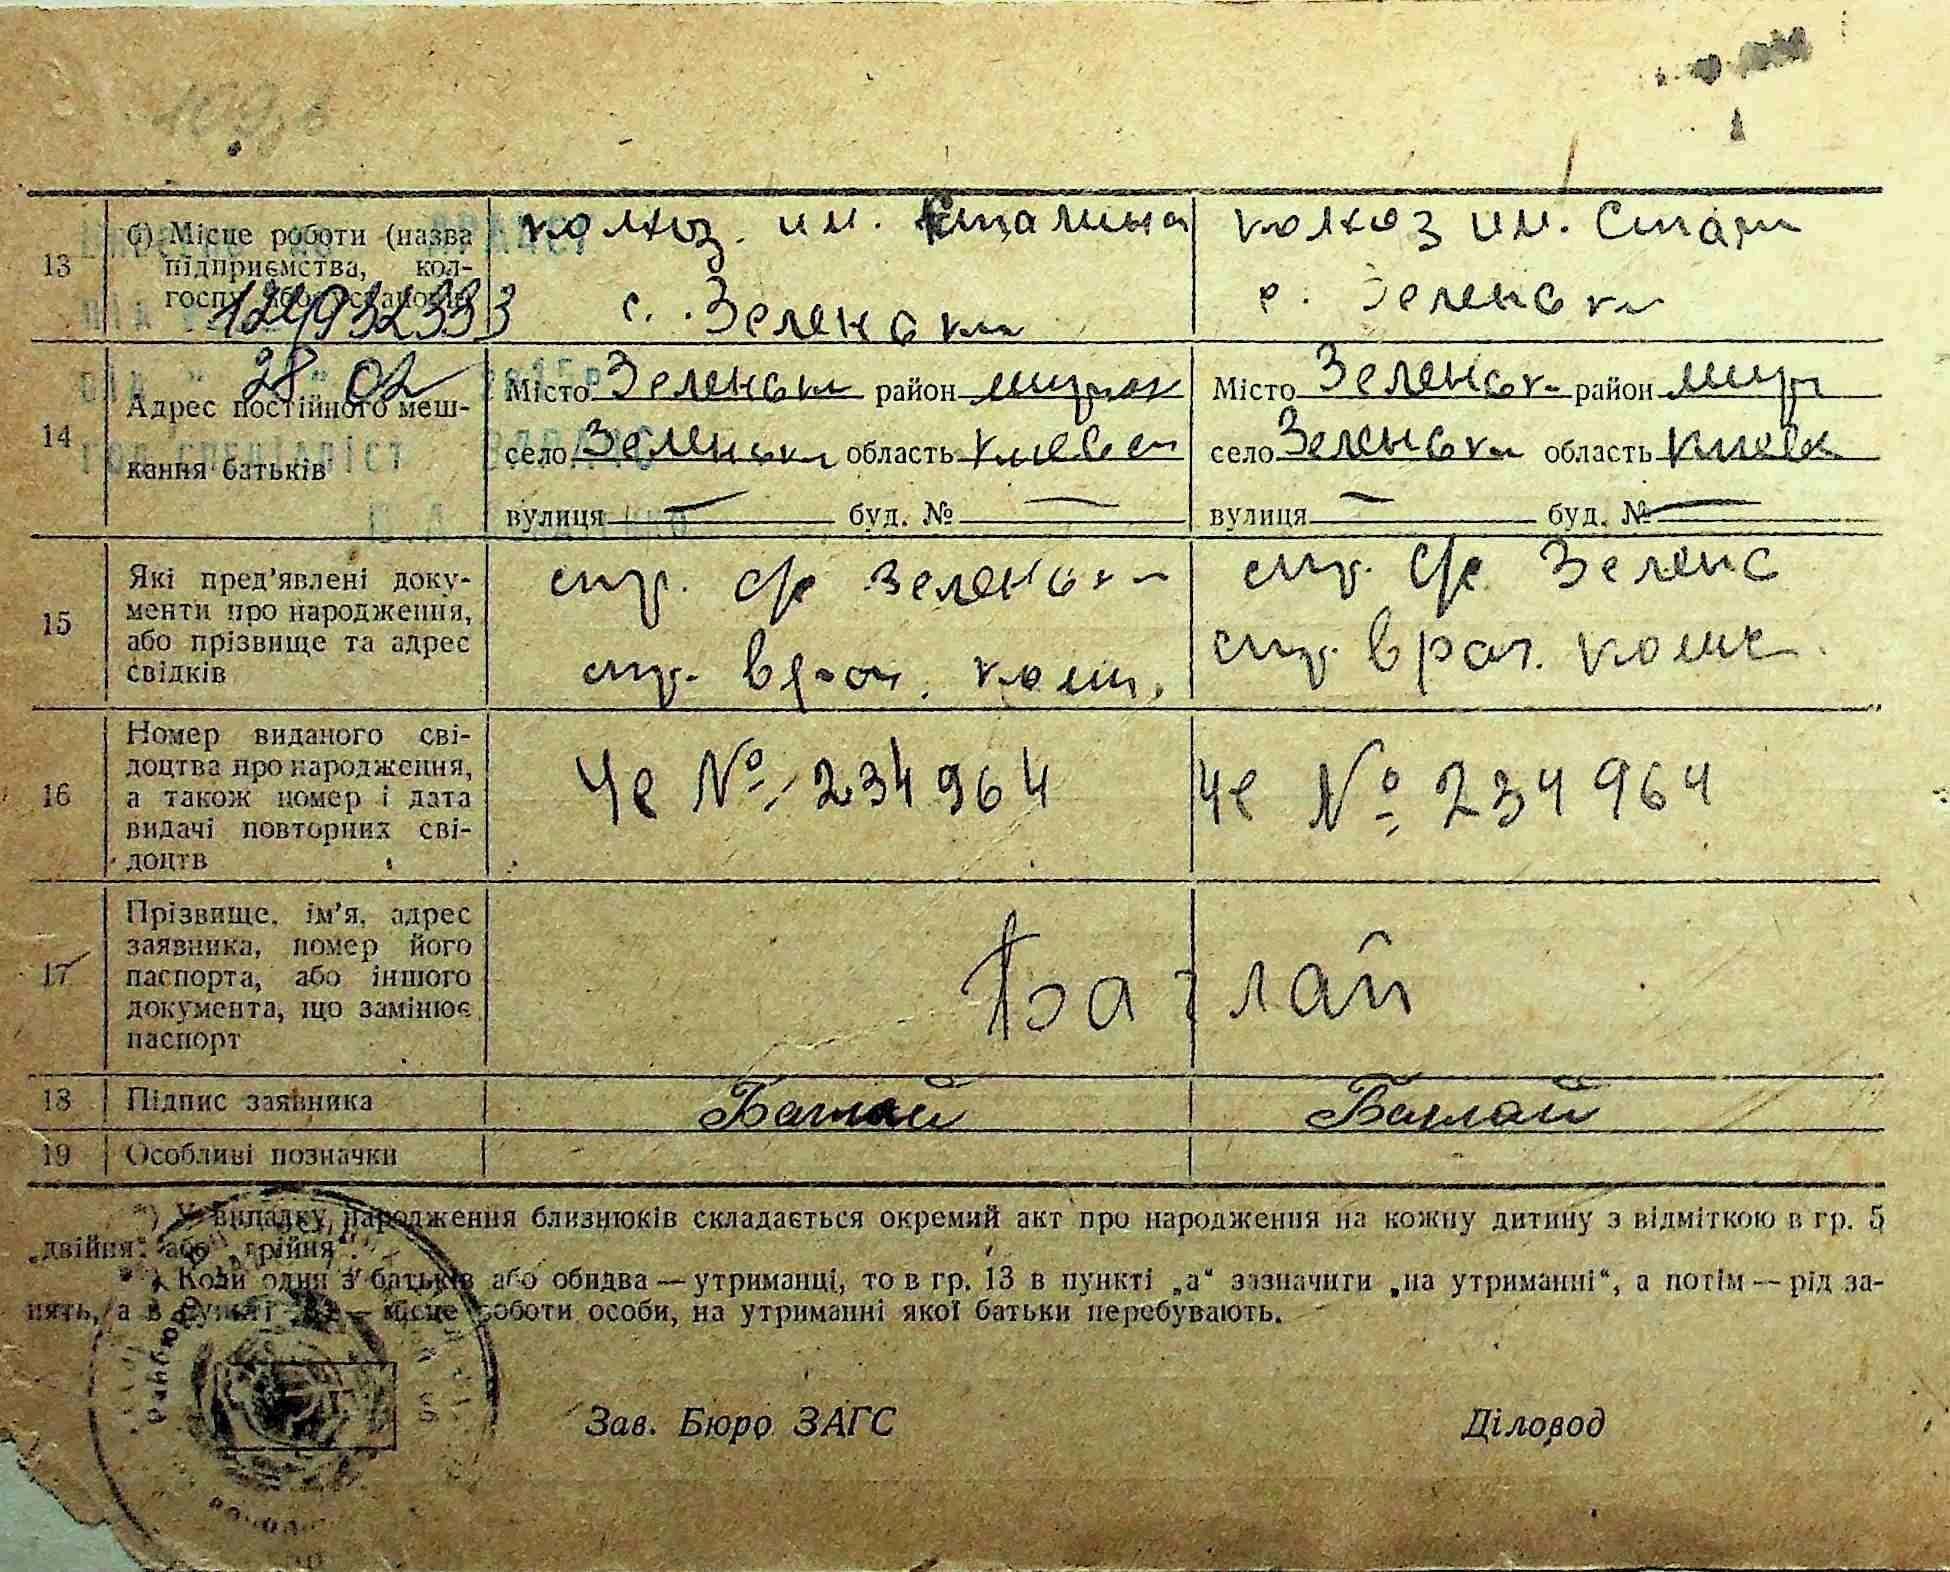 13
б) Місце роботи (назва
підприємства, кол-
госпу або установи)
колхоз. им. Сталина
с. Зеленьки
колхоз им. Стали
с. Зеленьки
124932333
28 02
14
Адрес постійного меш-
кання батьків
Місто Зеленьки район мирон
село Зеленьки область киевск
вулиця — буд. № —
Місто Зеленьки район мир
село Зеленьки область киевск
вулиця — буд. № —
15
Які пред'явлені доку-
менти про народження,
або прізвище та адрес
свідків
спр. с/р Зеленьки
спр. врач. ком.
спр. с/р Зеленс
спр. врач. коми
16
Номер виданого сві-
доцтва про народження,
а також номер і дата
видачі повторних сві-
доцтв
Че № 234964
Че № 234964
17
Прізвище, ім'я, адрес
заявника, номер його
паспорта, або іншого
документа, що замінює
паспорт
Баглай
18
Підпис заявника
Баглай
Баглай
19
Особливі позначки
*) У випадку, народження близнюків складається окремий акт про народження на кожну дитину з відміткою в гр. 5
„двійня" або „трійня".
*) Коли один з батьків або обидва — утриманці, то в гр. 13 в пункті „а" зазначити „на утриманні", а потім — рід за-
нять, а в пункті — місце роботи особи, на утриманні якої батьки перебувають.
Зав. Бюро ЗАГС
Діловод